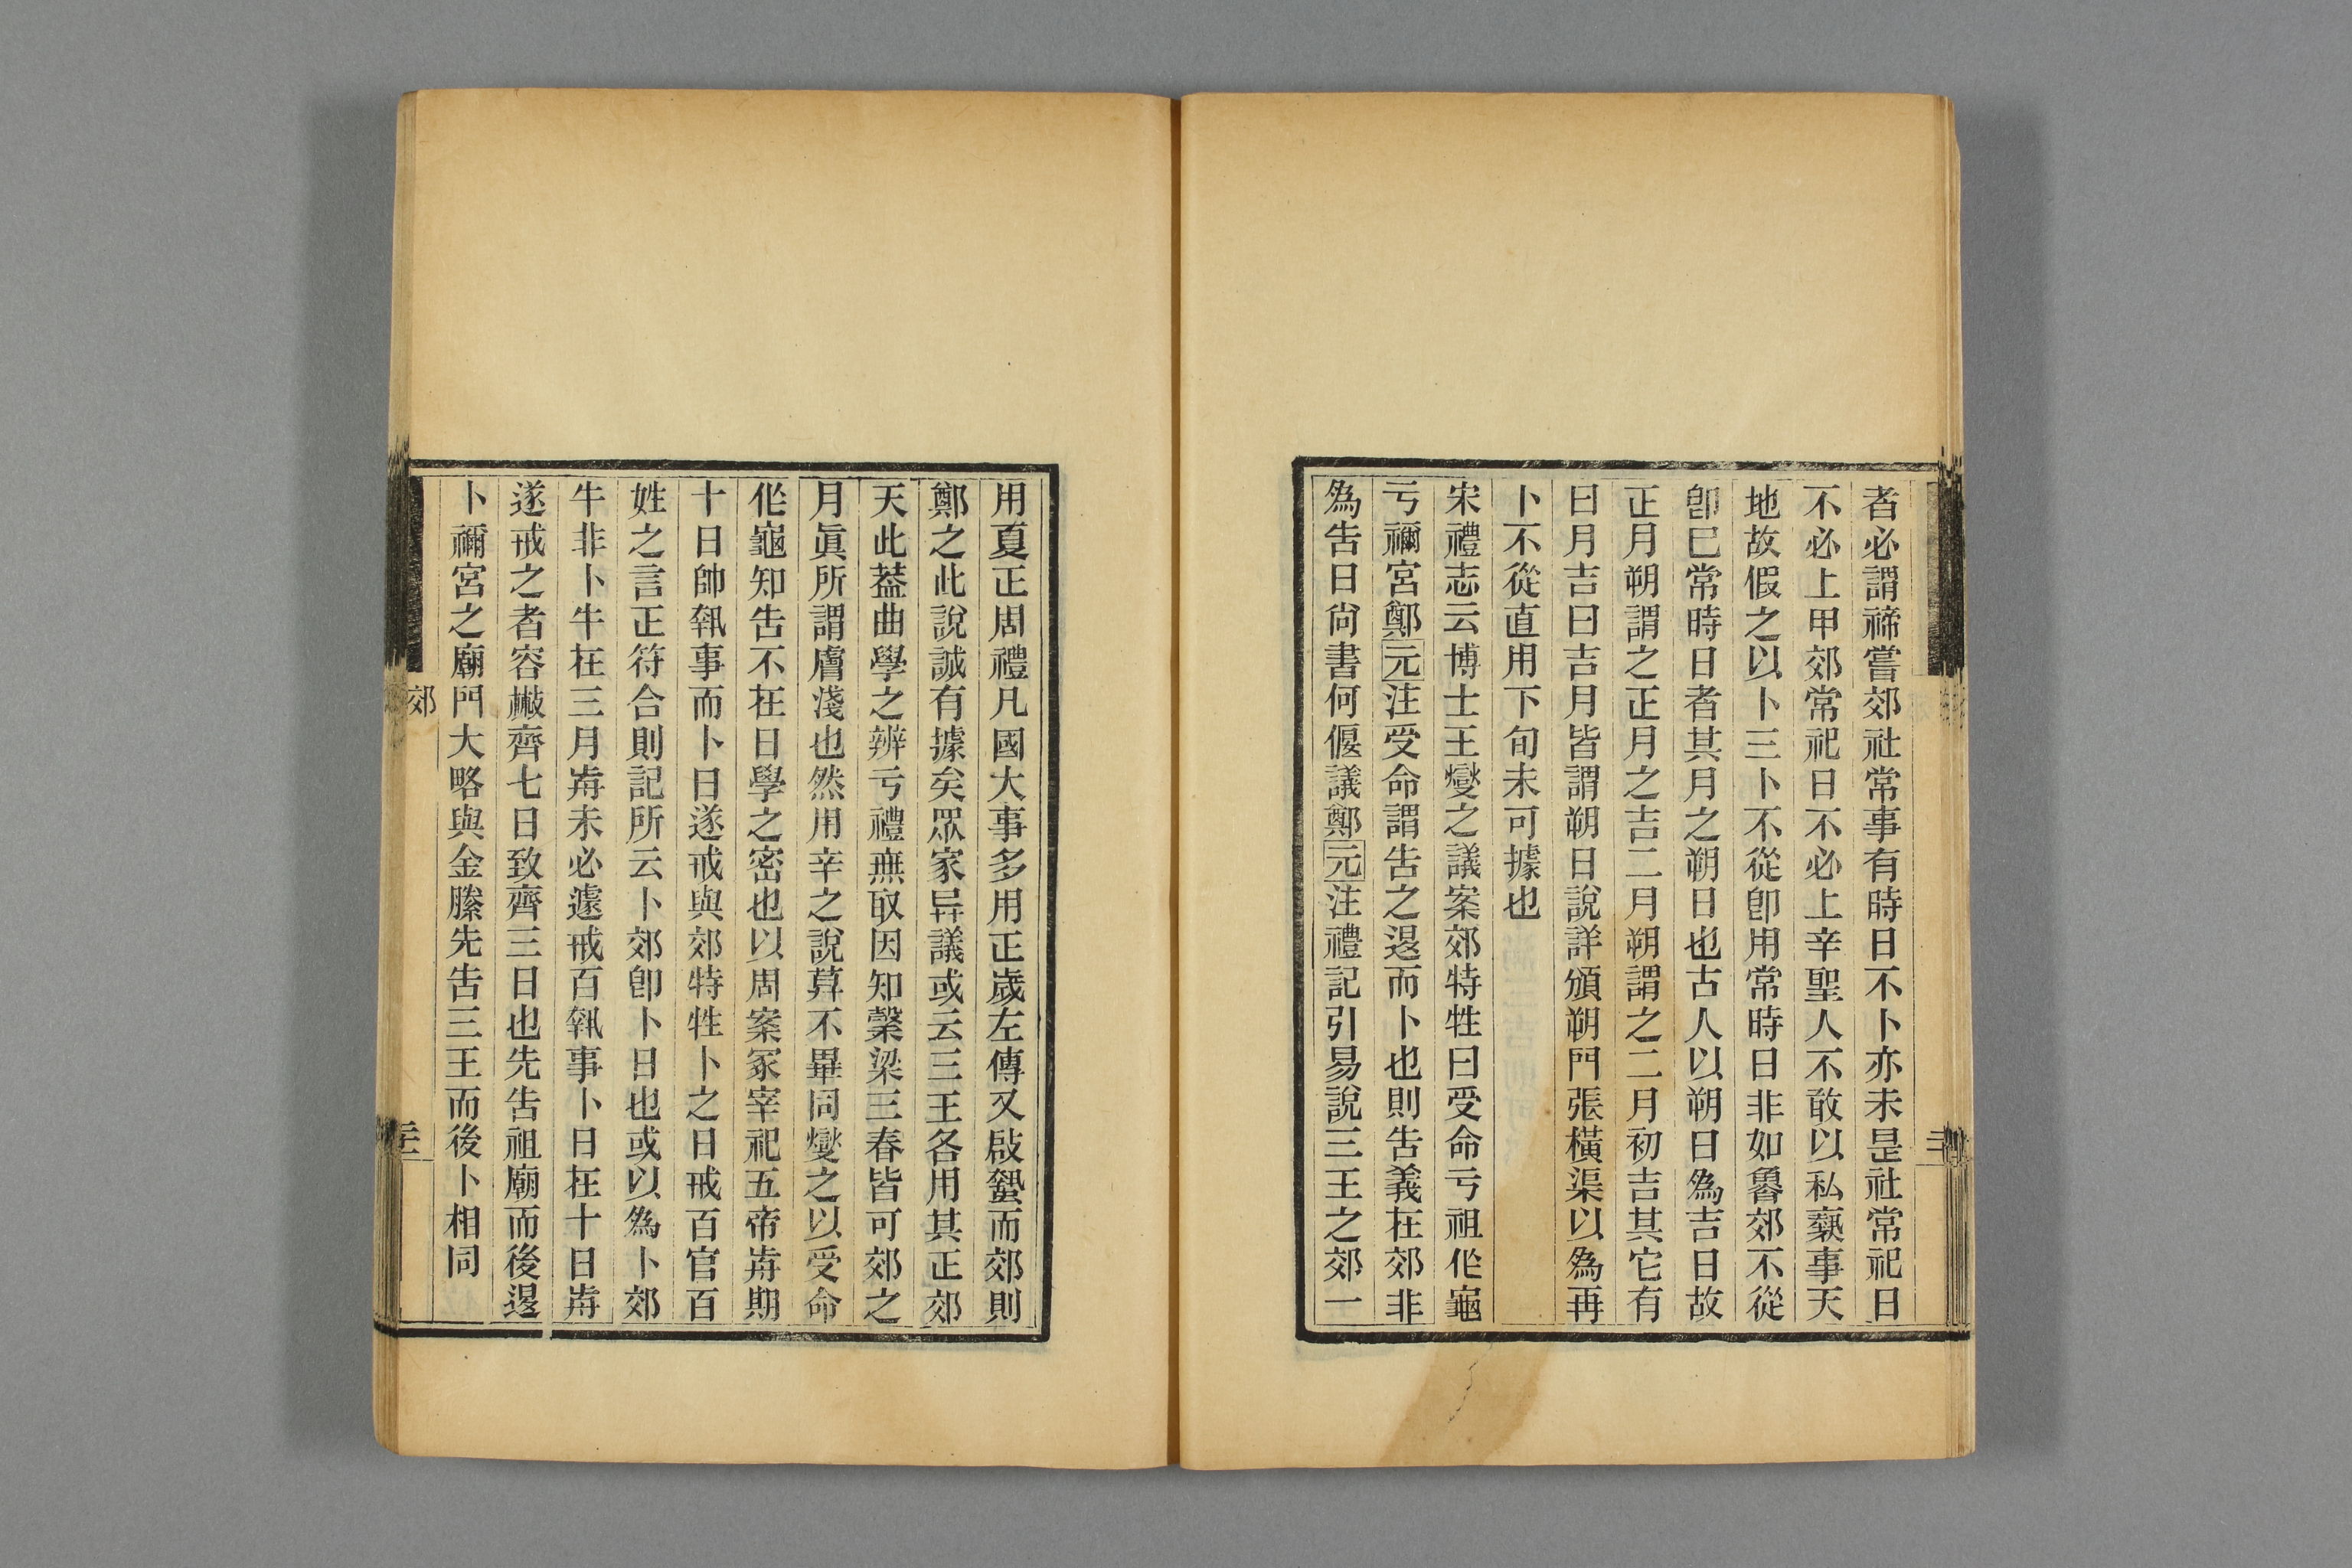 者必謂禘嘗郊社常事有時日不卜亦未是社常祀日
不必上甲郊常祀日不必上辛聖人不敢以私褻事天
地故假之以卜三卜不從卽用常時日非如魯郊不從
卽已常時日者其月之朔日也古人以朔日爲吉日故
正月朔謂之正月之吉二月朔謂之二月初吉其它有
曰月吉曰吉月皆謂朔日說詳頒朔門張橫渠以爲再
卜不從直用下旬未可據也
宋禮志云博士王燮之議案郊特牲曰受命亏祖𠈇龜
亏禰宮鄭元注受命謂告之退而卜也則告義在郊非
爲告日尙書何偃議鄭元注禮記引易說三王之郊一
用夏正周禮凡國大事多用正歲左傳又啟蟄而郊則
鄭之此說誠有據矣眾家异議或云三王各用其正郊
天此葢曲學之辨亏禮無取因知榖梁三春皆可郊之
月眞所謂膚淺也然用辛之說莫不畢同燮之以受命
𠈇龜知告不在日學之密也以周案冢宰祀五帝歬期
十日帥執事而卜日遂戒與郊特牲卜之日戒百官百
姓之言正符合則記所云卜郊卽卜日也或以爲卜郊
牛非卜牛在三月歬未必遽戒百執事卜日在十日歬
遂戒之者容㪚齊七日致齊三日也先告祖廟而後退
卜禰宮之廟門大略與金縢先告三王而後卜相同
郊